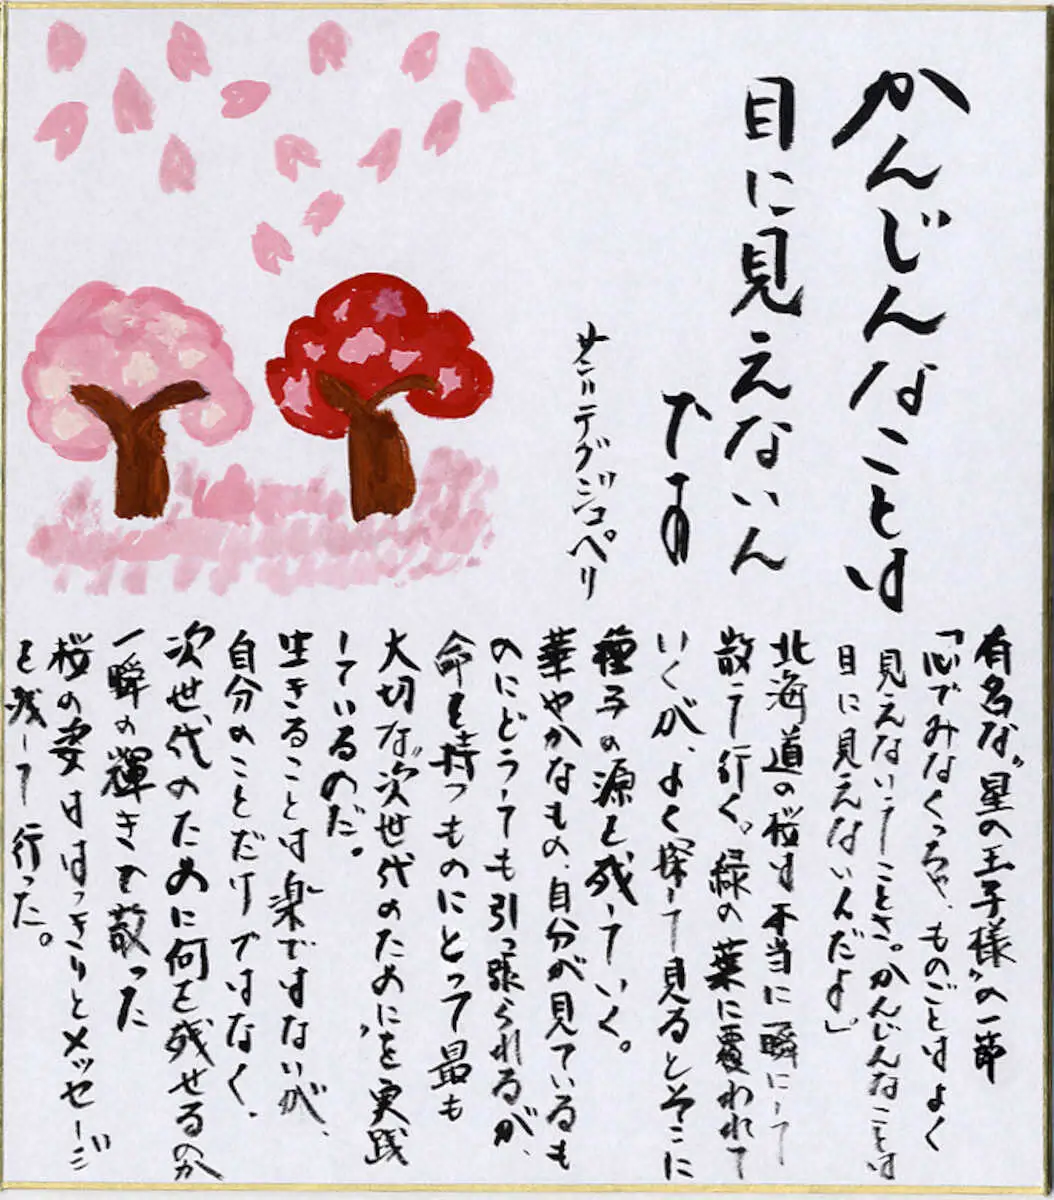 かんじんなことは
目に見えないん
だよ
サン=テグジュペリ
有名な〝星の王子様〟の一節
「心でみなくっちゃ、ものごとはよく
見えないってことさ。かんじんなことは
目に見えないんだよ」
北海道の桜は本当に一瞬にして
散って行く。緑の葉に覆われて
いくが、よく探して見るとそこに
種子の源を残していく。
華やかなもの、自分が見ているも
のにどうしても引っ張られるが、
命を持つものにとって最も
大切な〝次世代のために〟を実践
しているのだ。
生きることは楽ではないが、
自分のことだけではなく、
次世代のために何を残せるのか
一瞬の輝きで散った
桜の姿ははっきりとメッセージ
を残して行った。